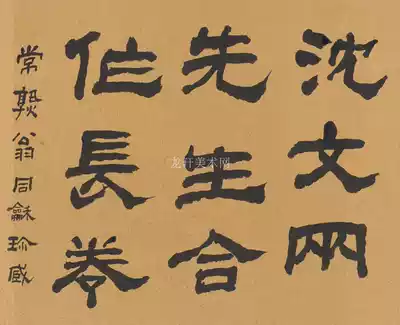 沈文兩
先生合
作長卷
常熟翁同龢珍藏
龙轩美术网